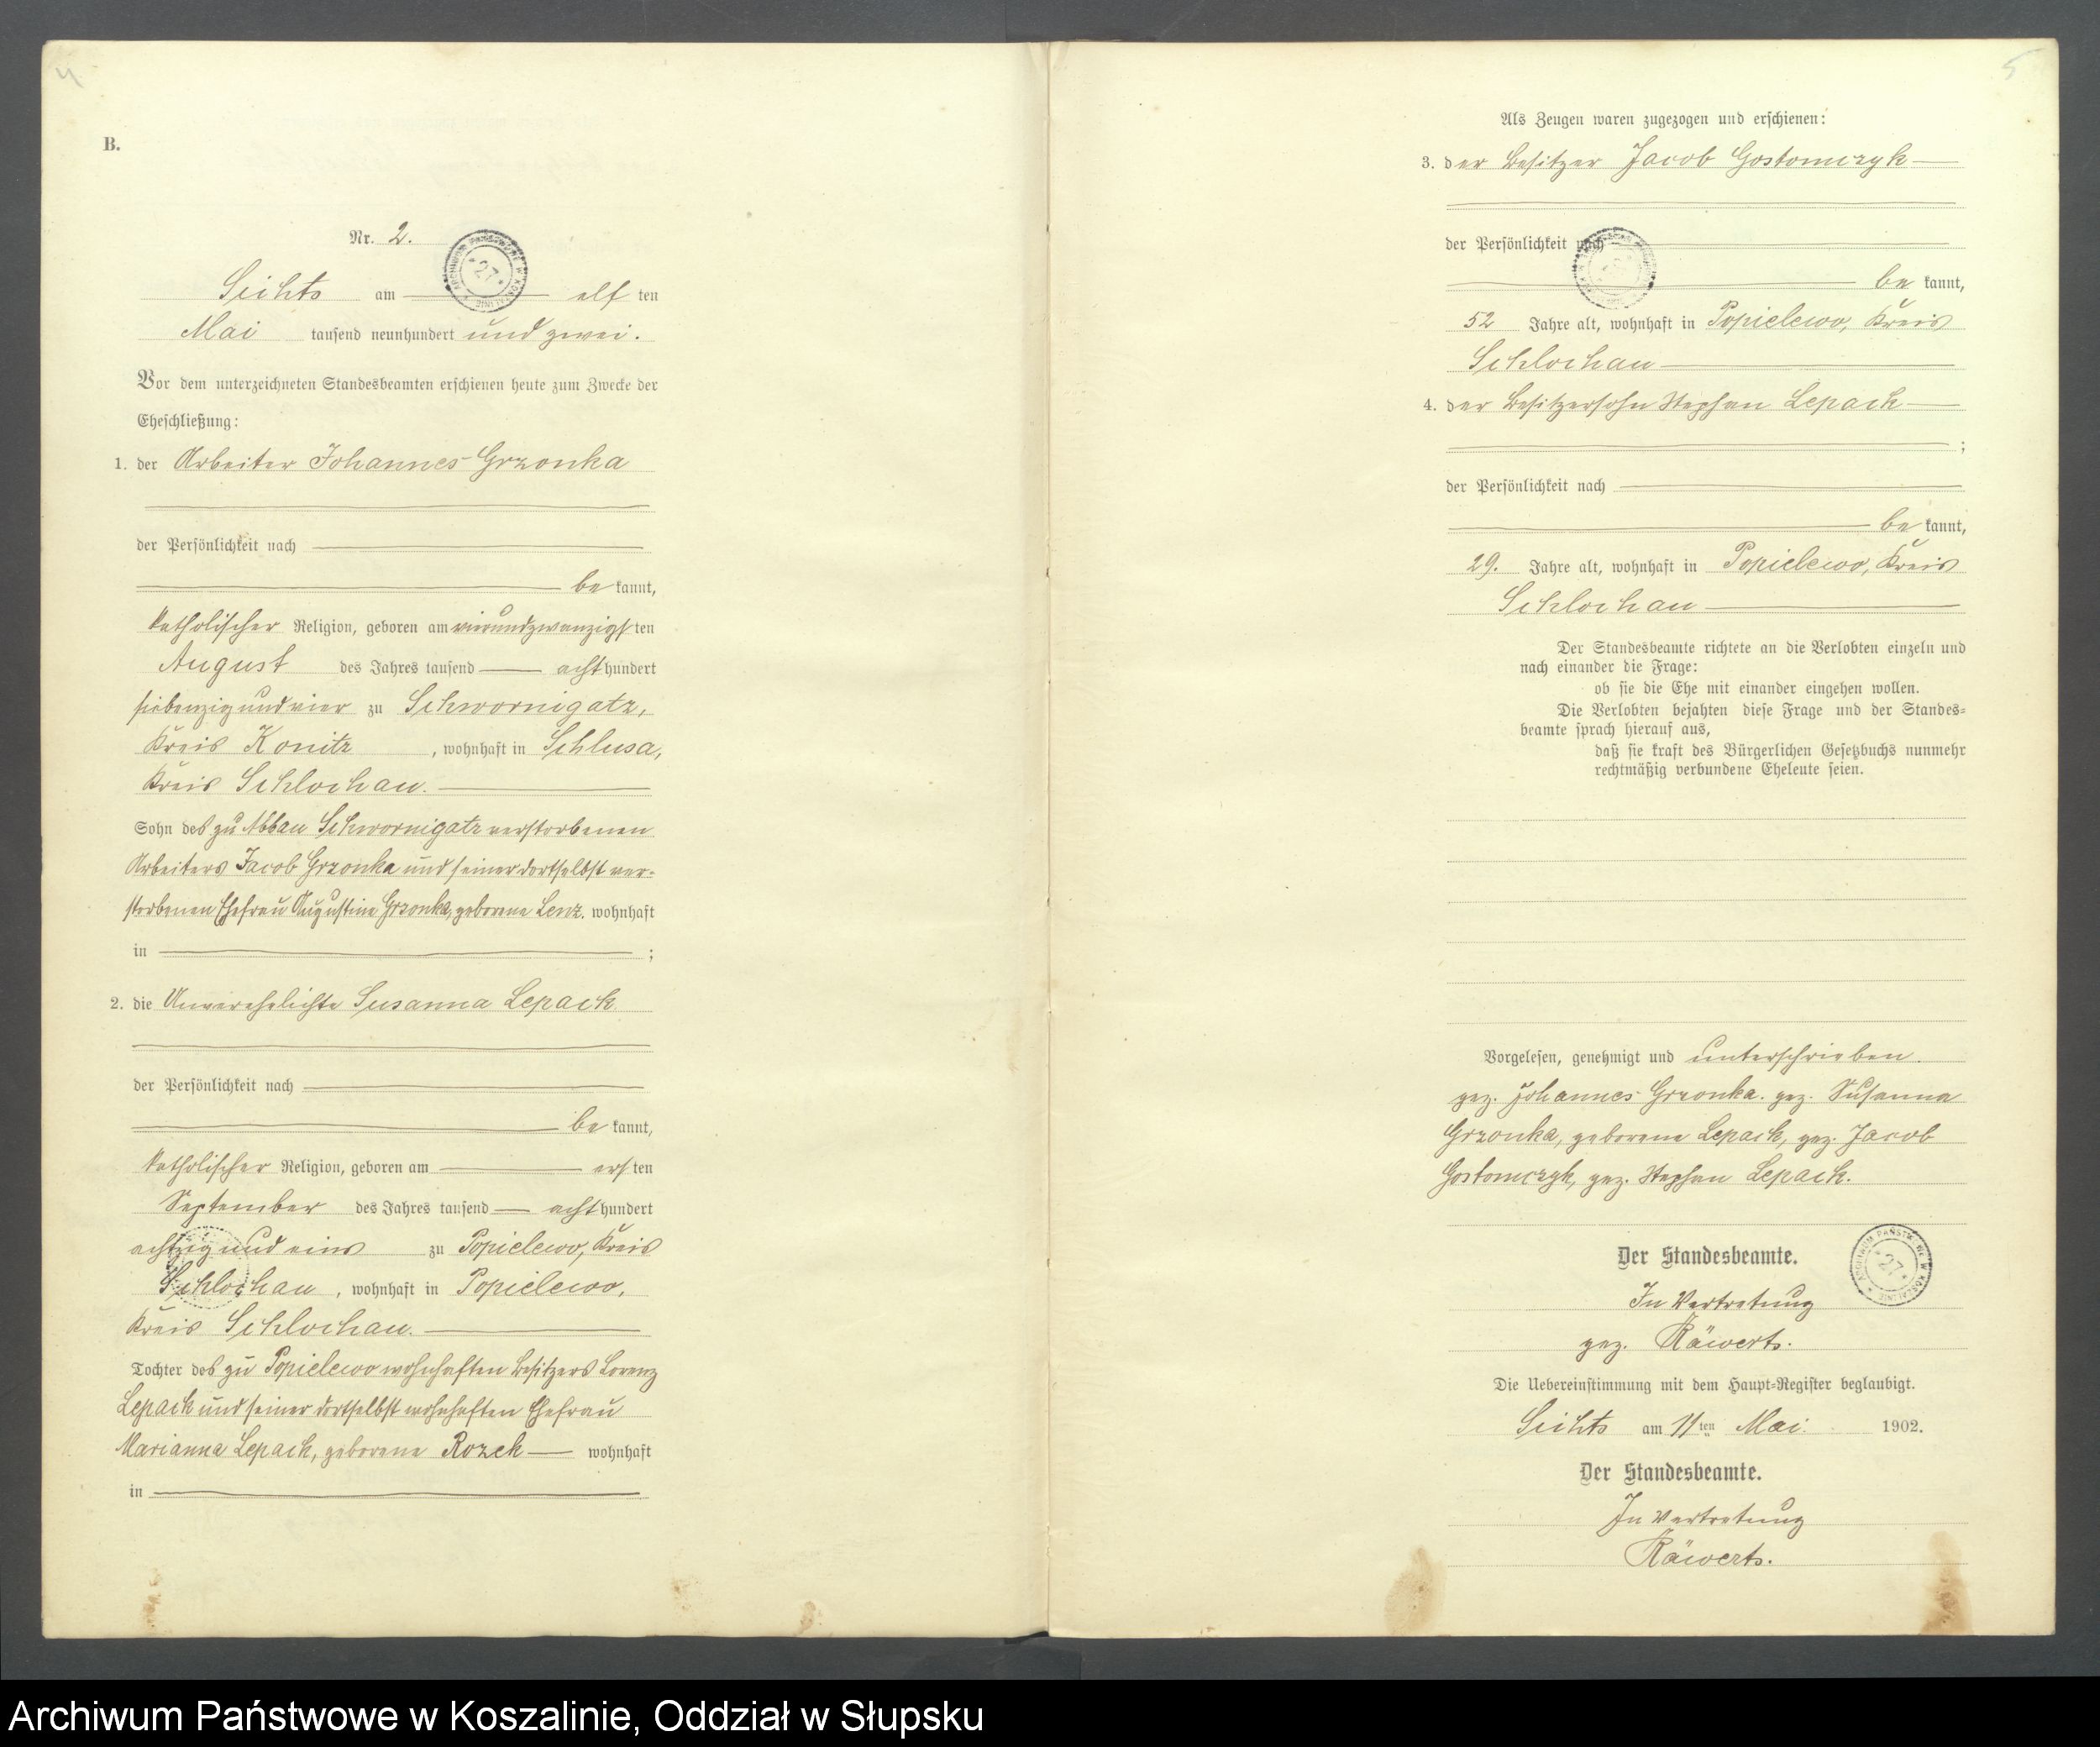 4
B.
Nr. 2.
ARCHIWUM PAŃSTWOWE W KOSZALINIE * 27 *
Lichts am elf ten
Mai tausend neunhundert und zwei.
Vor dem unterzeichneten Standesbeamten erschienen heute zum Zwecke der
Eheschließung:
1. der Arbeiter Johannes Grzonka
der Persönlichkeit nach
be kannt,
katholischer Religion, geboren am vierundzwanzigsten
August des Jahres tausend acht hundert
siebenzig und vier zu Schwornigatz,
Kreis Konitz , wohnhaft in Schlusa,
Kreis Schlochau.
Sohn des zu Abbau Schwornigatz verstorbenen
Arbeiters Jacob Grzonka und seiner dortselbst ver-
storbenen Ehefrau Augustine Grzonka, geborene Lenz. wohnhaft
in ;
2. die Unverehelichte Susanna Lepack
der Persönlichkeit nach
be kannt,
katholischer Religion, geboren am ers ten
September des Jahres tausend acht hundert
achtzig und eins zu Popielewo, Kreis
Schlochau , wohnhaft in Popielewo,
Kreis Schlochau.
Tochter des zu Popielewo wohnhaften Besitzers Lorenz
Lepack und seiner dortselbst wohnhaften Ehefrau
Marianna Lepack, geborene Rozek wohnhaft
in
5
Als Zeugen waren zugezogen und erschienen:
3. der Besitzer Jacob Gostomczyk
der Persönlichkeit nach
be kannt,
52 Jahre alt, wohnhaft in Popielewo, Kreis
Schlochau
4. der Besitzersohn Stephan Lepack
;
der Persönlichkeit nach
be kannt,
29. Jahre alt, wohnhaft in Popielewo, Kreis
Schlochau
Der Standesbeamte richtete an die Verlobten einzeln und
nach einander die Frage:
ob sie die Ehe mit einander eingehen wollen.
Die Verlobten bejahten diese Frage und der Standes-
beamte sprach hierauf aus,
daß sie kraft des Bürgerlichen Gesetzbuchs nunmehr
rechtmäßig verbundene Eheleute seien.
Vorgelesen, genehmigt und unterschrieben.
gez. Johannes Grzonka. gez. Susanna
Grzonka, geborene Lepack, gez. Jacob
Gostomczyk, gez. Stephan Lepack.
Der Standesbeamte.
ARCHIWUM PAŃSTWOWE W KOSZALINIE * 27 *
In Vertretung
gez. Räwerts.
Die Uebereinstimmung mit dem Haupt-Register beglaubigt.
Lichts am 11 ten Mai 1902.
Der Standesbeamte.
In Vertretung
Räwerts.
Archiwum Państwowe w Koszalinie, Oddział w Słupsku